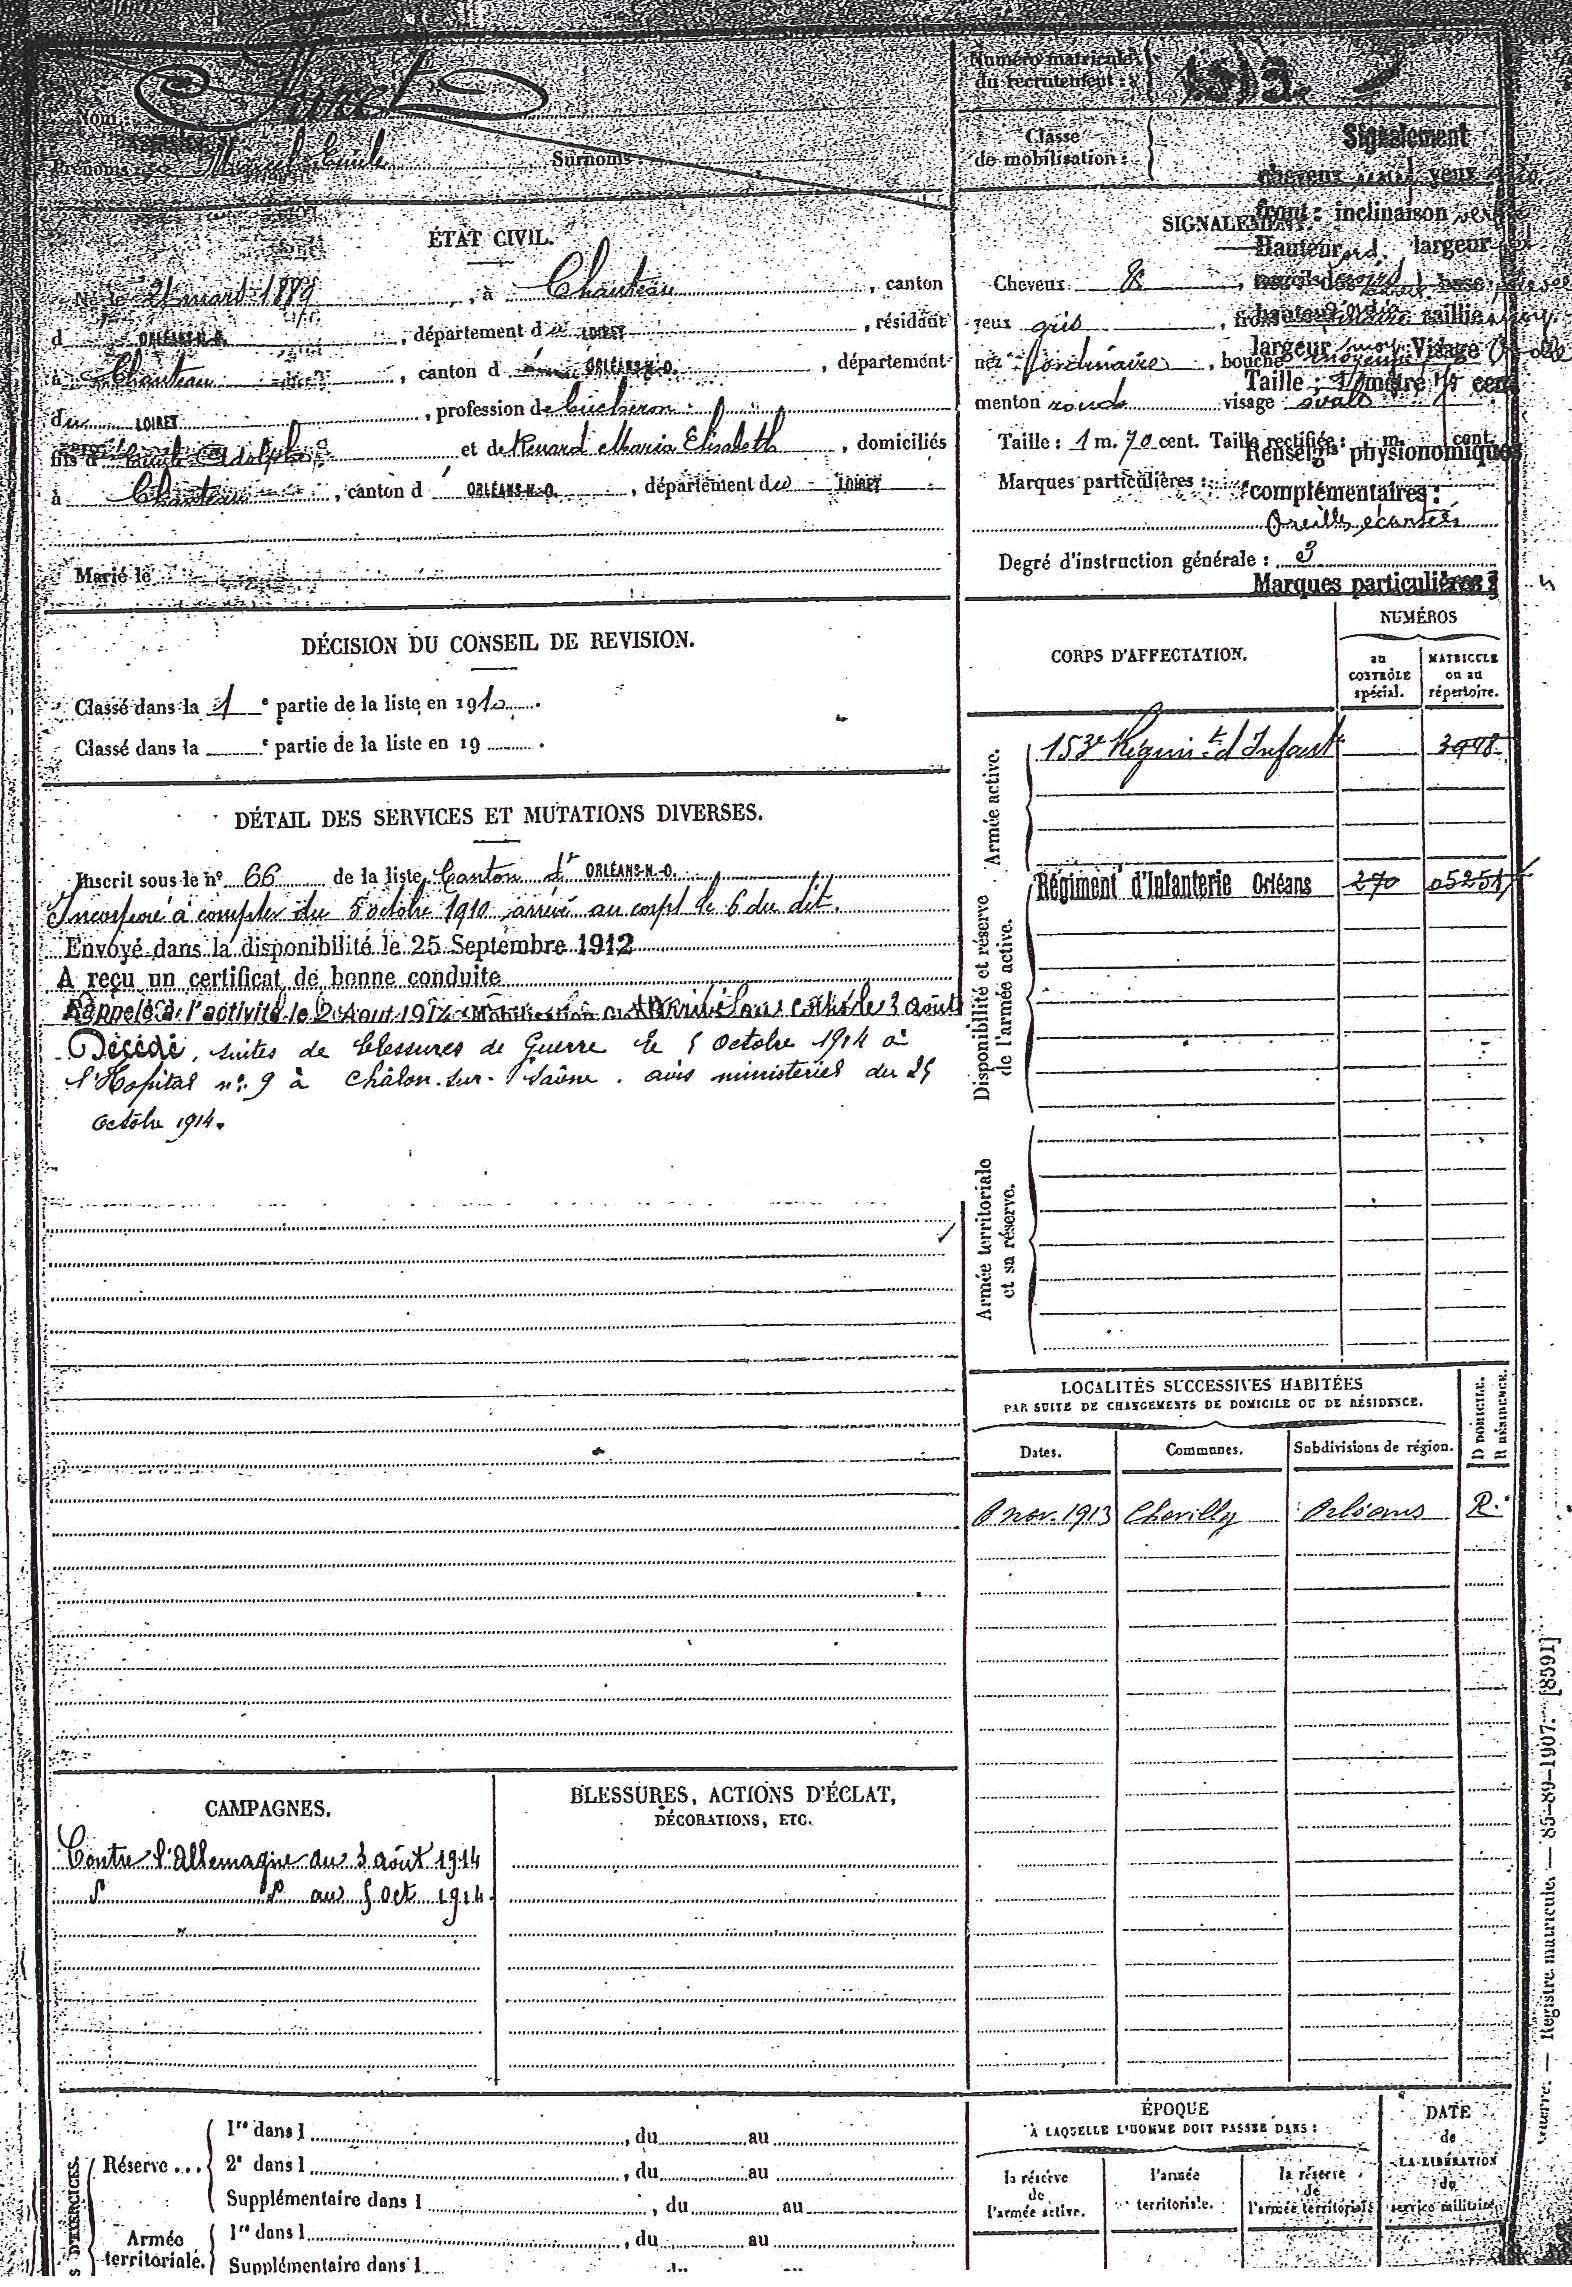 Nom
Prénoms Marcel Emile Surnoms :
Numéro matricule
du recrutement : 1513
Classe
de mobilisation :
ÉTAT CIVIL.
Né le 21 mars 1889, à Chanteau, canton
d ORLÉANS-N.-O., département du LOIRET, résidant
à Chanteau, canton d ORLÉANS-N.-O., département
du LOIRET, profession de bûcheron
fils d Adolphe et de Renard Maria Elisabeth, domiciliés
à Chanteau, canton d' ORLÉANS-N.-O., département du LOIRET
Marié le
SIGNALEMENT.
Signalement
cheveux yeux
front : inclinaison
Hauteur ord. largeur
Cheveux
yeux gris
nez ordinaire, bouche moyenne
menton rond visage ovale
largeur moy Visage
Taille : 1 mètre cent
Taille : 1 m. 70 cent. Taille rectifiée : m. cent.
Renseigts physionomiques
Marques particulières :
complémentaires :
Oreilles écartées
Degré d'instruction générale : 3
Marques particulières :
DÉCISION DU CONSEIL DE REVISION.
Classé dans la 1e partie de la liste en 1910.
Classé dans la e partie de la liste en 19 .
DÉTAIL DES SERVICES ET MUTATIONS DIVERSES.
Inscrit sous le no 66 de la liste Canton d' ORLÉANS-N.-O.
Incorporé à compter du 5 octobre 1910, arrivé au corps le 6 du dit.
Envoyé dans la disponibilité le 25 Septembre 1912
A reçu un certificat de bonne conduite
Rappelé à l'activité le 2 Aout 1914 Mobilisation Arrivé au corps le 3 août
Décédé, suites de blessures de Guerre le 5 octobre 1914 à
l'Hopital no 9 à Châlon-sur-Saône. avis ministeriel du 25
octobre 1914.
CORPS D'AFFECTATION.
NUMÉROS
au
CONTRÔLE
spécial.
MATRICULE
ou au
répertoire.
Armée active.
153e Régimt d'Infantie
Disponibilité et réserve
de l'armée active.
Régiment d'Infanterie Orléans 270 05251
Armée territoriale
et sa réserve.
LOCALITÉS SUCCESSIVES HABITÉES
PAR SUITE DE CHANGEMENTS DE DOMICILE OU DE RÉSIDENCE.
D DOMICILE.
R RÉSIDENCE.
Dates. Communes. Subdivisions de région.
nov. 1913 Chevilly Orléans R.
CAMPAGNES.
Contre l'Allemagne du 3 août 1914
au 5 Oct 1914.
BLESSURES, ACTIONS D'ÉCLAT,
DÉCORATIONS, ETC.
Réserve...
1re dans l , du au
2e dans l , du au
Supplémentaire dans l , du au
Armée
territoriale.
1re dans l , du au
Supplémentaire dans l
D'EXERCICES.
ÉPOQUE
À LAQUELLE L'HOMME DOIT PASSER DANS :
la réserve
de
l'armée active.
l'armée
territoriale.
la réserve
de
l'armée territoriale
DATE
de
LA LIBÉRATION
du
service militaire
Guerre. — Registre matricule. — 85-89-1907. [8591]